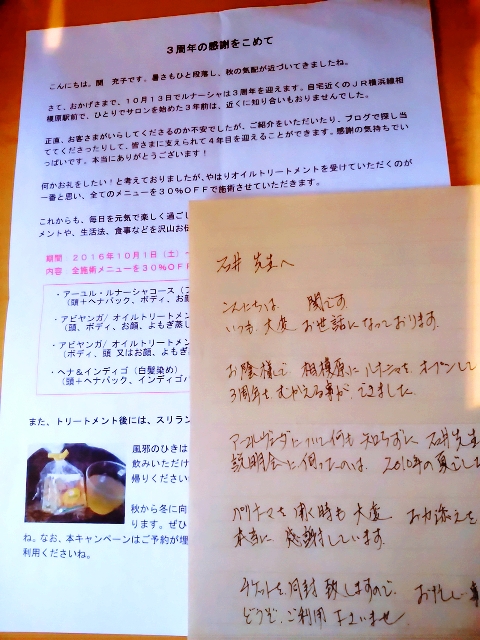 3周年の感謝をこめて
こんにちは。関 充子です。暑さもひと段落し、秋の気配が近づいてきましたね。
さて、おかげさまで、10月13日でルナーシャは3周年を迎えます。自宅近くのJR横浜線相
模原駅前で、ひとりでサロンを始めた3年前は、近くに知り合いもおりませんでした。
正直、お客さまがいらしてくださるのか不安でしたが、ご紹介をいただいたり、ブログで探し当
ててくださったりして、皆さまに支えられて4年目を迎えることができます。感謝の気持ちでい
っぱいです。本当にありがとうございます!
何かお礼をしたい!と考えておりましたが、やはりオイルトリートメントを受けていただくのが
一番と思い、全てのメニューを30%OFFで施術させていただきます。
これからも、毎日を元気で楽しく過ごし
メントや、生活法、食事などを沢山お伝
期間:2016年10月1日(土)~
内容:全施術メニューを30%OFF
・アーユル・ルナーシャコース(
(頭+ヘナパック、ボディ、お顔
・アビヤンガ/オイルトリートメン
(頭、ボディ、お顔、よもぎ蒸し
・アビヤンガ/オイルトリートメン
(ボディ、頭 又はお顔、よもぎ
・ヘナ&インディゴ(白髪染め)
(頭+ヘナパック、インディゴパ
また、トリートメント後には、スリラン
風邪のひきは
飲みいただけ
帰りください
秋から冬に向
ります。ぜひ
ね。なお、本キャンペーンはご予約が埋
利用くださいね。
石井 先生へ
こんにちは 関です。
いつも 大変 お世話になっております。
お陰様で 相模原に ルナーシャを オープンして
3周年を むかえる事が できました。
アーユルヴェーダについて何も 知らずに 石井先生
説明会に 伺ったのは、2010年の夏でした
を 開く時も 大変 お力添えを
本当に 感謝しています。
チケットを 同封 致しますので、
どうぞ、ご利用 下さいませ